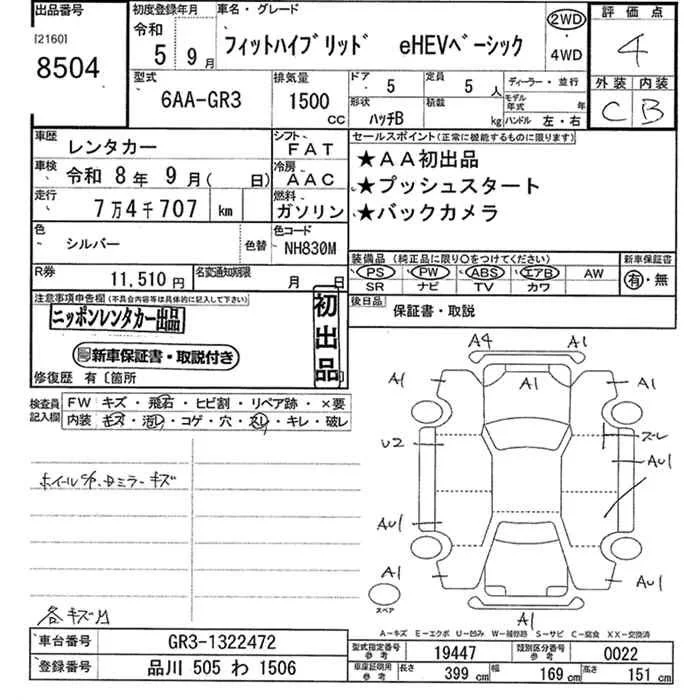 出品番号
[2160]
8504
初度登録年月
令和 5年 9月
車名・グレード
フィットハイブリッド eHEVベーシック
2WD
4WD
評価点
4
外装 内装
C B
型式
6AA-GR3
排気量
1500 CC
ドア 5
定員 5人
形状 ハッチB
積載 kg
ディーラー・並行
モデル年式 年
ハンドル 左・右
車歴 レンタカー
車検 令和 8年 9月( 日)
走行 7万4千707 km
シフト FAT
冷房 AAC
燃料 ガソリン
セールスポイント(正常に機能するものに限ります)
★AA初出品
★プッシュスタート
★バックカメラ
色 シルバー
色替
色コード NH830M
R券 11,510円
名変通知期限 月 日
装備品 (純正品に限り○をつけてください)
PS PW ABS エアB AW
SR ナビ TV カワ
新車保証書
有・無
後日品 保証書・取説
注意事項申告欄(不具合内容等は具体的に記入して下さい)
ニッポンレンタカー出品
新車保証書・取説付き
初出品
修復歴 有〔箇所
検査員記入欄
FW キズ・飛石・ヒビ割・リペア跡・×要
内装 キズ・汚レ・コゲ・穴・スレ・キレ・破レ
各キズ凹
A4 A1
A1 A1 A1
U2 スレ
AU1
AU1
A1 AU1
A1
スペア
A-キズ E-エクボ U-凹み W-補修跡 S-サビ C-腐食 XX-交換済
車台番号 GR3-1322472
登録番号 品川 505 わ 1506
型式指定番号 参考 19447
類別区分番号 参考 0022
車庫証明用 参考
長さ 399 cm
幅 169 cm
高さ 151 cm